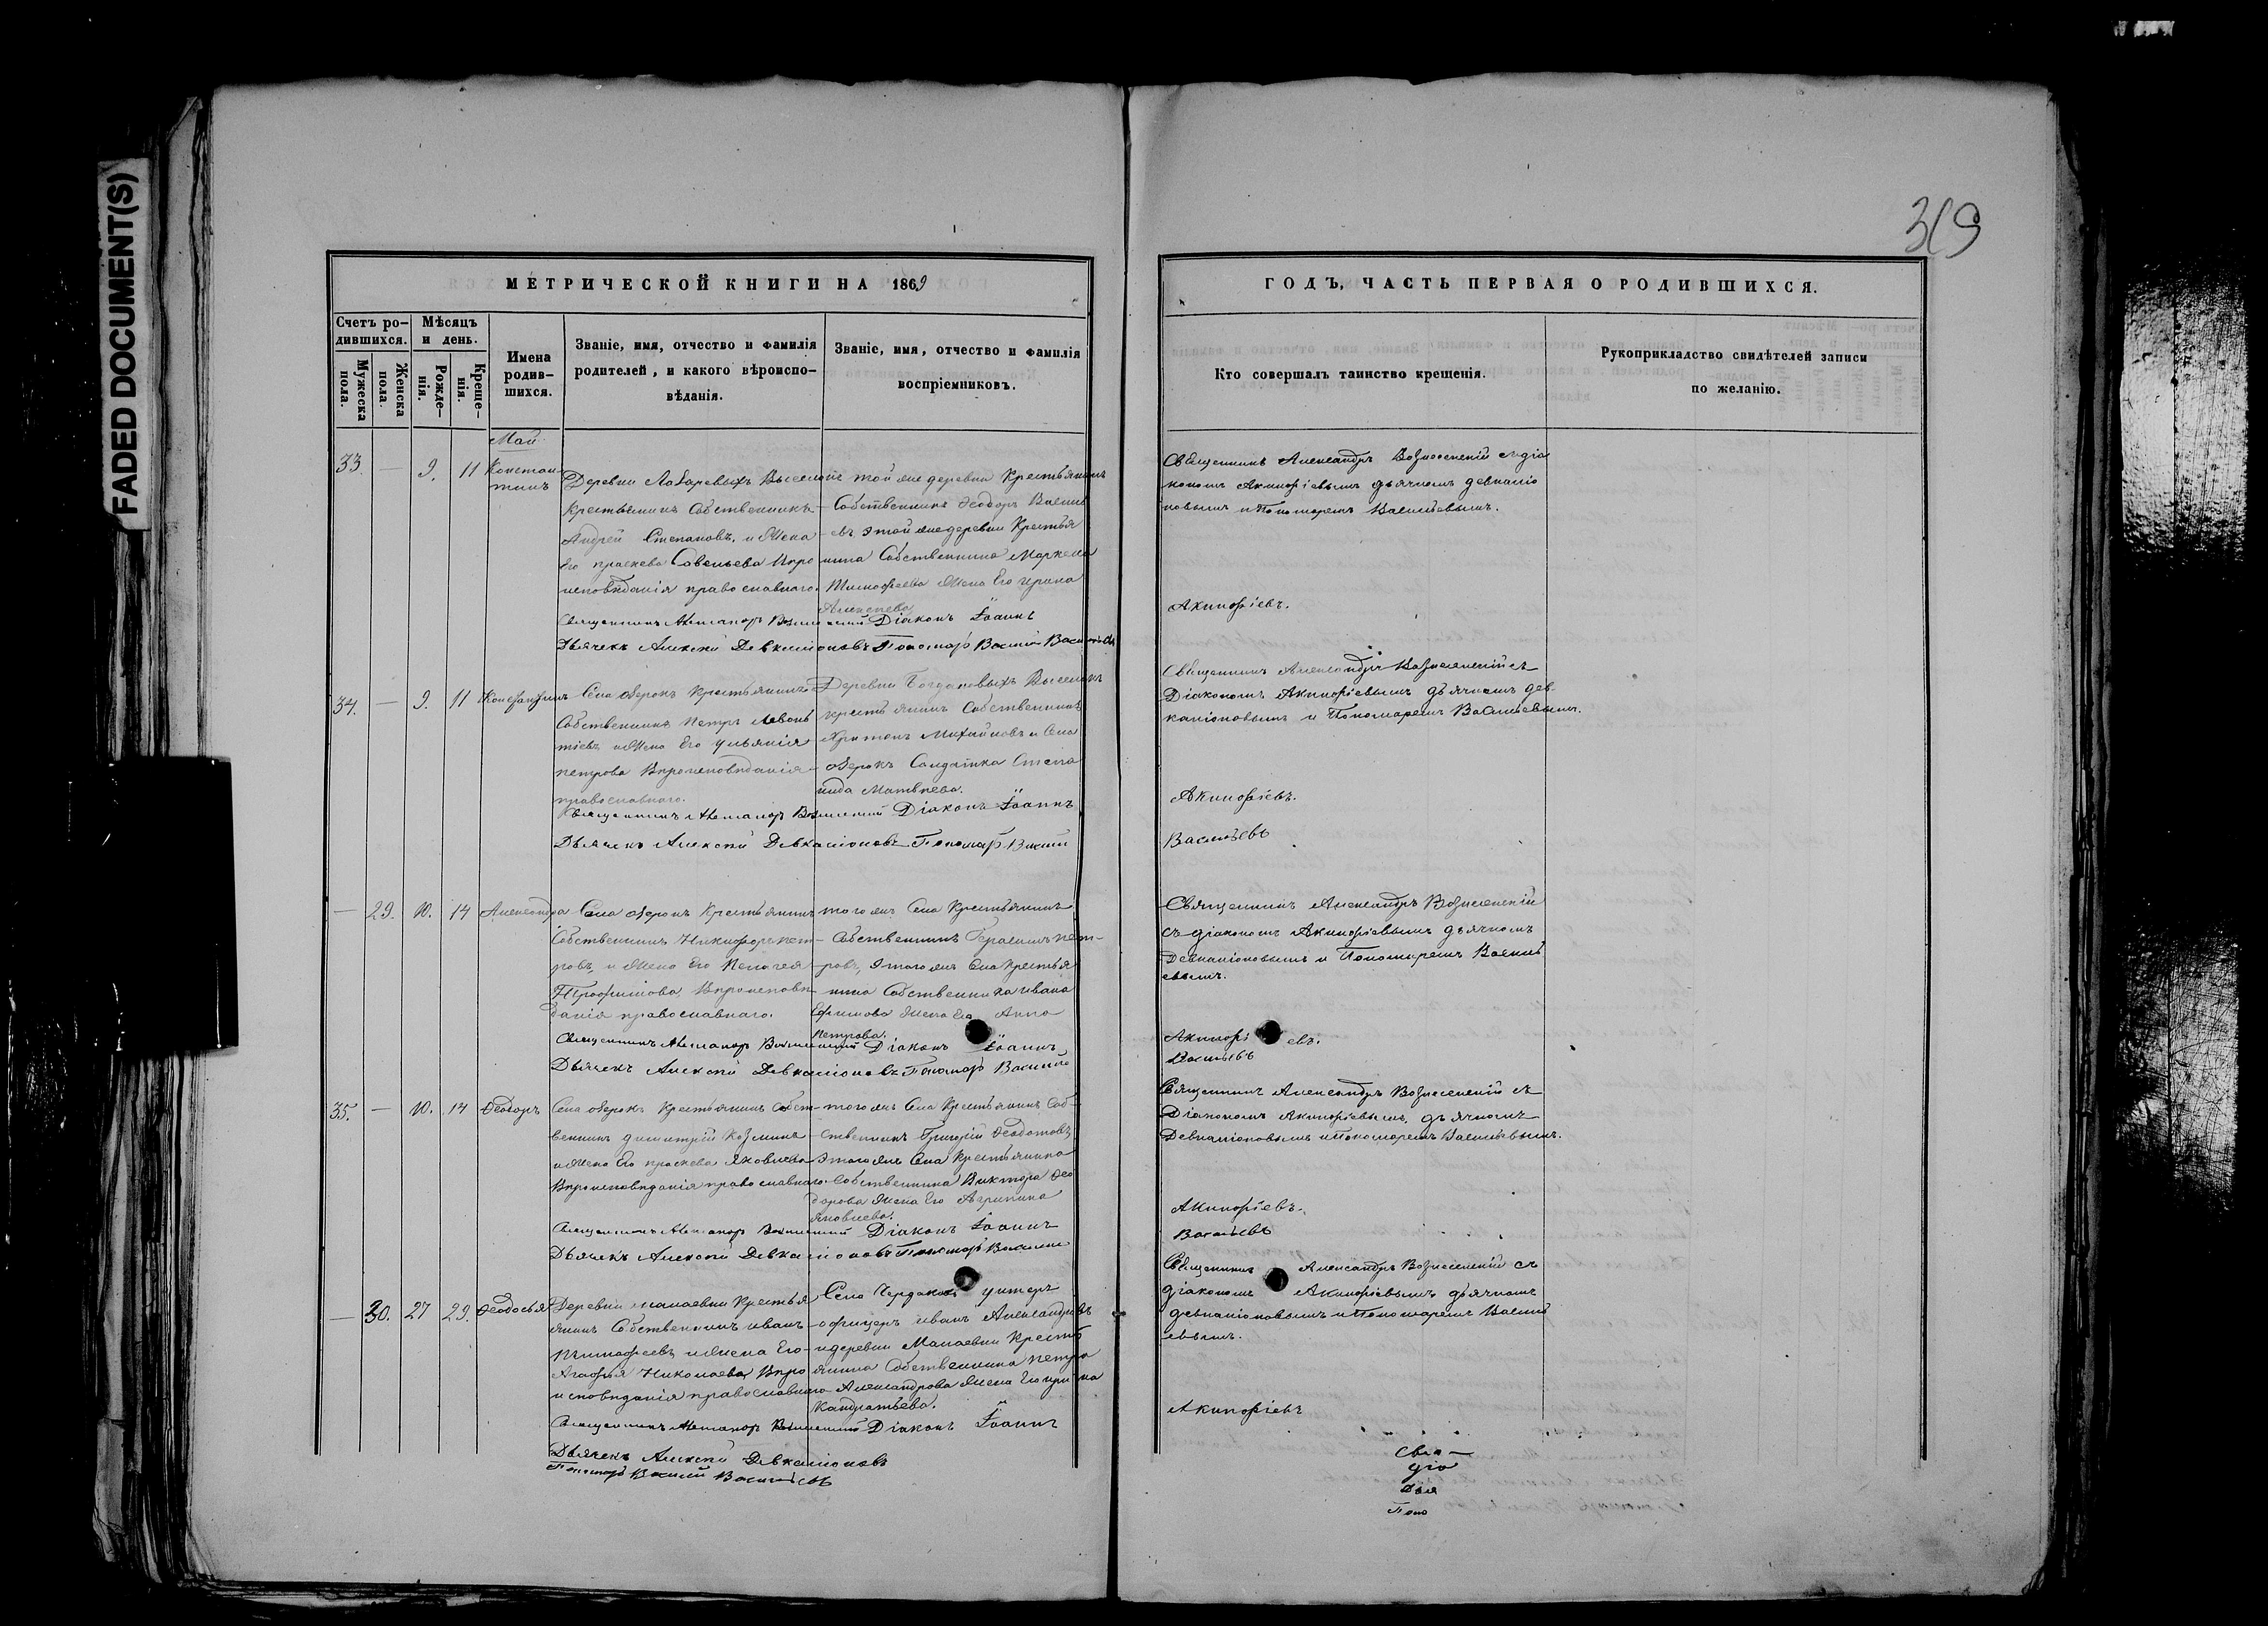 FADED DOCUMENT(S)
319
МЕТРИЧЕСКОЙ КНИГИ НА 1869
Счетъ ро-
дившихся.
Мужеска
пола.
Женска
пола.
Мѣсяцъ
и день.
Рожде-
нія.
Креще-
нія.
Имена
родив-
шихся.
Званіе, имя, отчество и фамилія
родителей, и какого вѣроиспо-
вѣданія.
Званіе, имя, отчество и фамилія
воспріемниковъ.
Май
33. — 9. 11 Констан-
тинъ
Деревни Выселокъ
крестьянинъ Собственникъ
Андрей Степановъ, и Жена
Его праскева Савельева Вѣро
исповѣданія православнаго.
той же деревни Крестьянинъ
Собственникъ Ѳеодоръ Василь
евъ этой же деревни Крестья
нина Собственника Маркела
Тимофеева Жена Его ирина
Алексеева
Священникъ Александръ Вознесенскій Діаконъ Іоаннъ
Дьячекъ Алексѣй Девкаліоновъ Пономарь Василій Васильевъ
34. — 9. 11 Константинъ
Села озерокъ Крестьянинъ
Собственникъ Петръ Левонь
тіевъ и Жена Его ульянія
петрова Вѣроисповѣданія
православнаго.
Деревни Богдановыхъ Выселокъ
крестьянинъ Собственникъ
Михайловъ и Села
озерокъ Солдатка Степа
нида Матвѣева.
Священникъ Александръ Вознесенскій Діаконъ Іоаннъ
Дьячекъ Алексѣй Девкаліоновъ Пономарь Василій
— 29. 10. 14 Александра
Села озерокъ Крестьянинъ
Собственникъ Никифоръ пет-
ровъ, и Жена Его Пелагея
Трофимова, Вѣроисповѣ
данія православнаго.
того же Села Крестьянинъ
Собственникъ Герасимъ пет-
ровъ, этого же Села Крестья
нина Собственника ивана
Ефимова Жена Его Анна
петрова.
Священникъ Александръ Вознесенскій Діаконъ Іоаннъ
Дьячекъ Алексѣй Девкаліоновъ Пономарь Василій
35. — 10. 14 Ѳеодоръ
Села озерокъ Крестьянинъ Собст-
венникъ димитрій Козминъ
и Жена Его праскева Яковлева
Вѣроисповѣданія православнаго
того же Села Крестьянинъ Соб-
ственникъ Григорій Ѳеодотовъ,
этого же Села Крестьянина
Собственника Виктора Ѳео
дорова Жена Его Агрипина
Яковлева.
Священникъ Александръ Вознесенскій Діаконъ Іоаннъ
Дьячекъ Алексѣй Девкаліоновъ Пономарь Василій
— 30. 27 29. Ѳеодосья
Деревни Малаевки Крестья
янинъ Собственникъ иванъ
Тимофеевъ и Жена Его
Агафья Николаева, Вѣро
исповѣданія православнаго
Села унтеръ
офицеръ иванъ Александровъ
и деревни Малаевки Крестья
янина Собственника петра
Александрова Жена Его ирина
Кандратьева.
Священникъ Александръ Вознесенскій Діаконъ Іоаннъ
Дьячекъ Алексѣй Девкаліоновъ
Пономарь Василій Васильевъ
ГОДЪ, ЧАСТЬ ПЕРВАЯ О РОДИВШИХСЯ.
Кто совершалъ таинство крещенія.
Рукоприкладство свидѣтелей записи
по желанію.
Священникъ Александръ Вознесенскій съ діа
кономъ Акинфіевымъ дьячкомъ девкаліо
новымъ и Пономаремъ Васильевымъ.
Акинфіевъ.
Священникъ Александръ Вознесенскій съ
Діакономъ Акинфіевымъ дьячкомъ дев-
каліоновымъ и Пономаремъ Васильевымъ.
Акинфіевъ.
Васильевъ
Священникъ Александръ Вознесенскій
съ діакономъ Акинфіевымъ дьячкомъ
Девкаліоновымъ и Пономаремъ Василь
евымъ.
Акинфіевъ.
Васильевъ
Священникъ Александръ Вознесенскій съ
Діакономъ Акинфіевымъ, дьячкомъ
Девкаліоновымъ и Пономаремъ Васильевымъ.
Акинфіевъ.
Васильевъ
Священникъ Александръ Вознесенскій съ
діакономъ Акинфіевымъ дьячкомъ
девкаліоновымъ и Пономаремъ Василь
евымъ.
Акинфіевъ
Свя—
діа
дья
Поно